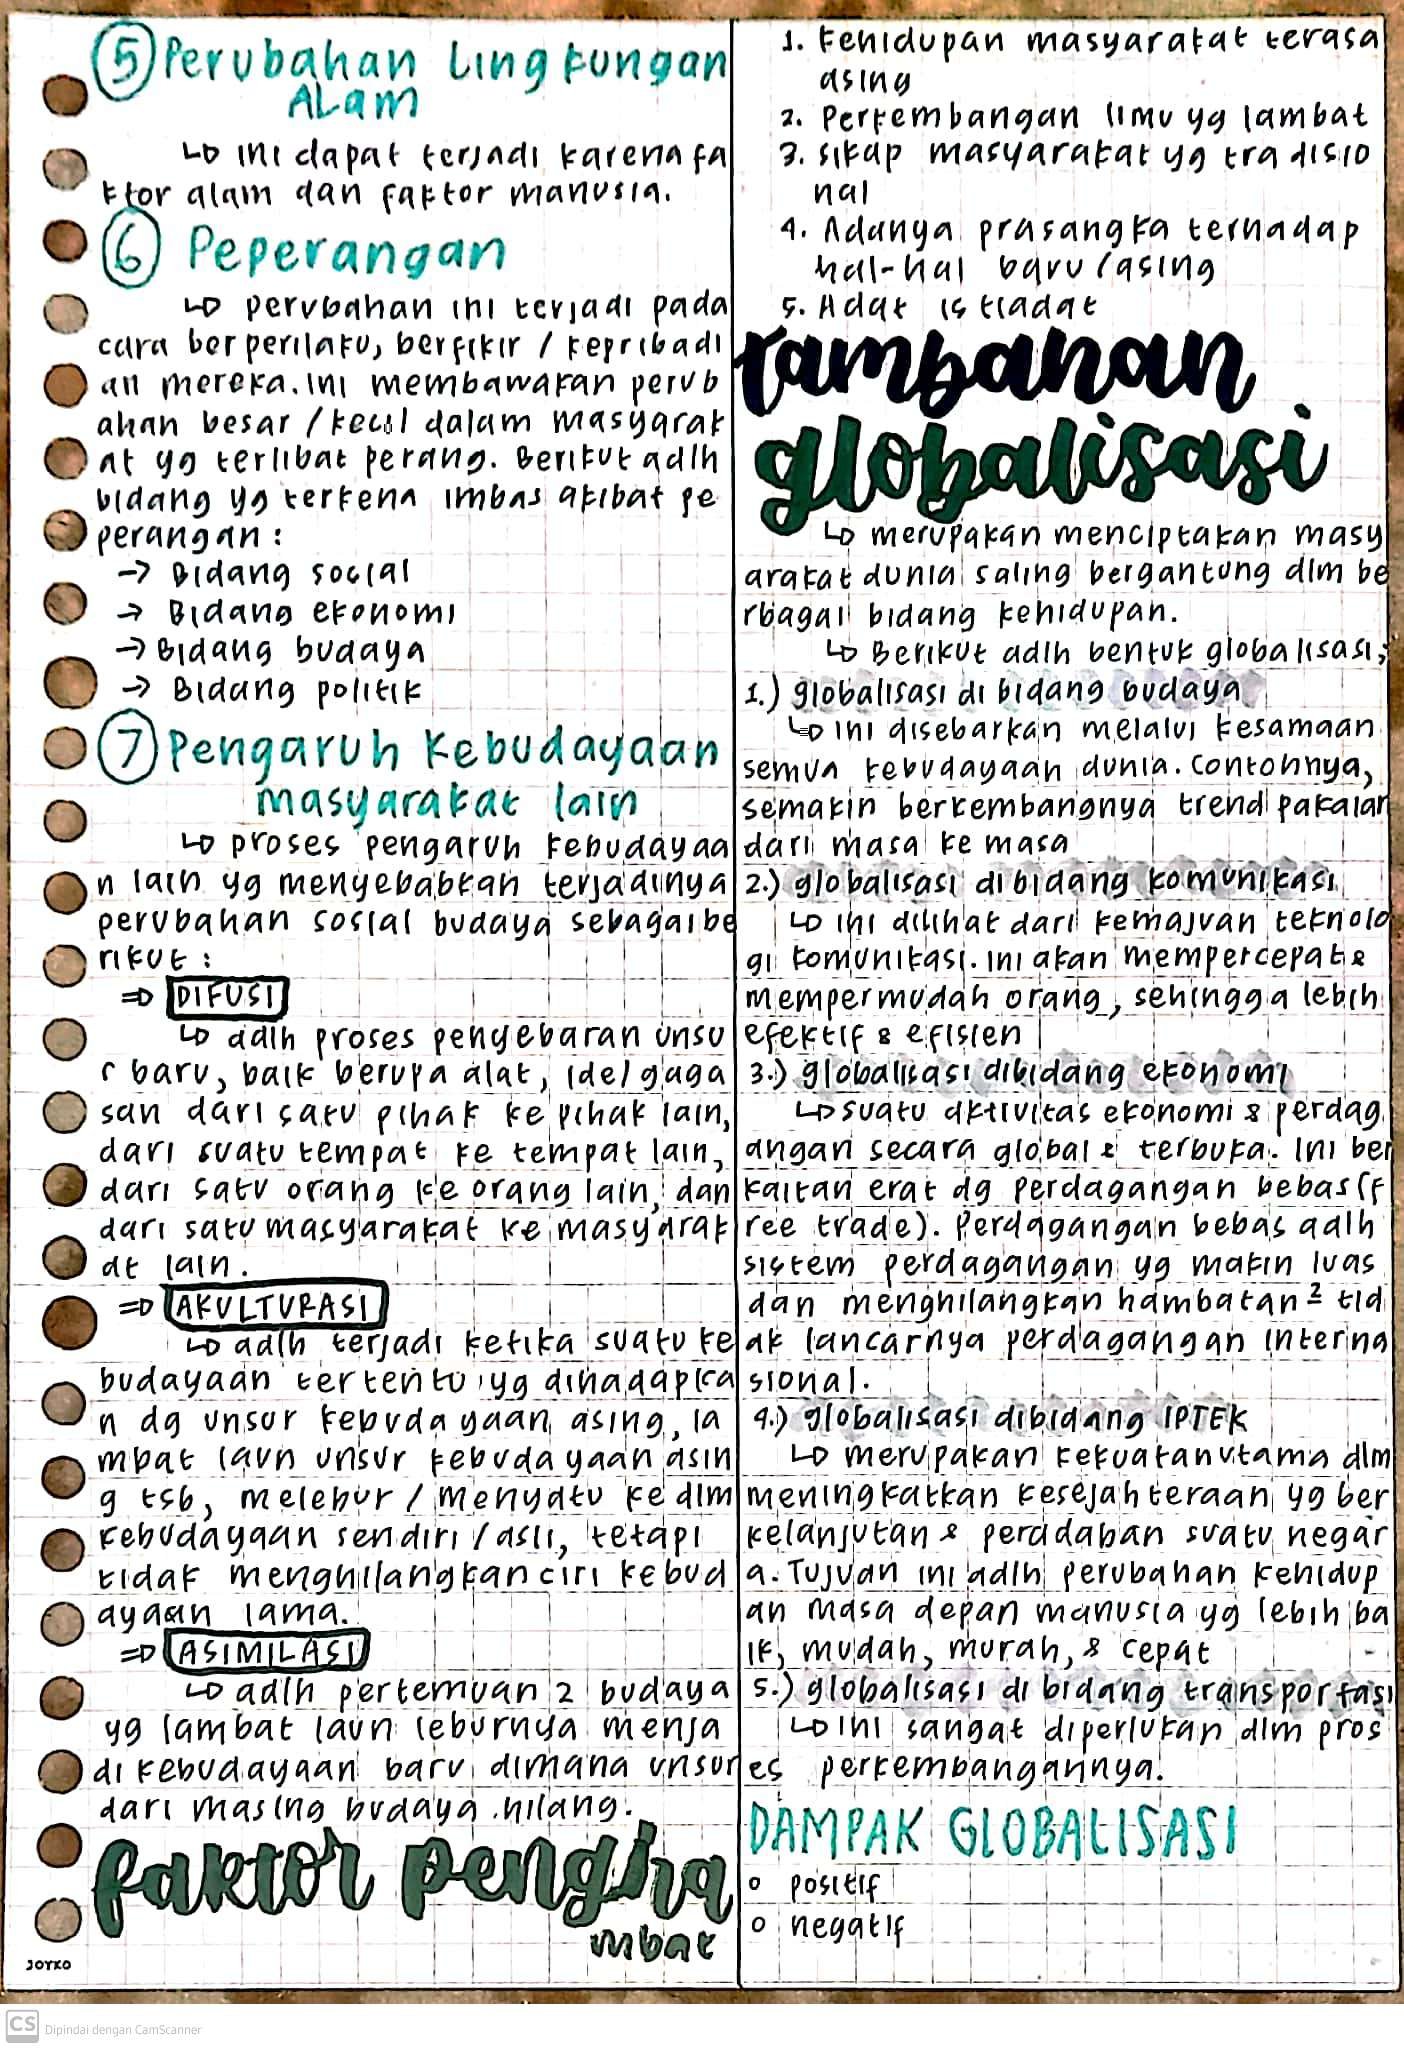 5 Perubahan Lingkungan
Alam
↳ ini dapat terjadi karena fa
ktor alam dan faktor manusia.
6 Peperangan
↳ perubahan ini terjadi pada
cara berperilaku, berfikir / kepribadi
an mereka. ini membawakan perub
ahan besar / kecil dalam masyarak
at yg terlibat perang. Berikut adlh
bidang yg terkena imbas akibat pe
perangan :
→ Bidang social
→ Bidang ekonomi
→ Bidang budaya
→ Bidang politik
7 Pengaruh Kebudayaan
masyarakat lain
↳ proses pengaruh kebudayaa
n lain yg menyebabkan terjadinya
perubahan sosial budaya sebagai be
rikut :
⇒ DIFUSI
↳ adlh proses penyebaran unsu
r baru, baik berupa alat, ide/gaga
san dari satu pihak ke pihak lain,
dari suatu tempat ke tempat lain,
dari satu orang ke orang lain, dan
dari satu masyarakat ke masyarak
at lain.
⇒ AKULTURASI
↳ adlh terjadi ketika suatu ke
budayaan tertentu yg dihadapka
n dg unsur kebudayaan asing, la
mbat laun unsur kebudayaan asin
g tsb, melebur / menyatu ke dlm
kebudayaan sendiri / asli, tetapi
tidak menghilangkan ciri kebud
ayaan lama.
⇒ ASIMILASI
↳ adlh pertemuan 2 budaya
yg lambat laun leburnya menja
di kebudayaan baru dimana unsur
dari masing budaya hilang.
faktor pengha
mbat
1. Kehidupan masyarakat terasa
asing
2. Perkembangan ilmu yg lambat
3. sikap masyarakat yg tradisio
nal
4. Adanya prasangka terhadap
hal-hal baru / asing
5. Adat istiadat
tambahan
globalisasi
↳ merupakan menciptakan masy
arakat dunia saling bergantung dlm be
rbagai bidang kehidupan.
↳ Berikut adlh bentuk globalisasi;
1.) globalisasi di bidang budaya
↳ ini disebarkan melalui kesamaan
semua kebudayaan dunia. Contohnya,
semakin berkembangnya trend pakaian
dari masa ke masa
2.) globalisasi dibidang komunikasi
↳ ini dilihat dari kemajuan teknolo
gi komunikasi. ini akan mempercepat &
mempermudah orang, sehingga lebih
efektif & efisien
3.) globalisasi dibidang ekonomi
↳ suatu aktivitas ekonomi & perdag
angan secara global & terbuka. Ini ber
kaitan erat dg perdagangan bebas (f
ree trade). Perdagangan bebas adlh
sistem perdagangan yg makin luas
dan menghilangkan hambatan² tid
ak lancarnya perdagangan interna
sional.
4.) globalisasi dibidang IPTEK
↳ merupakan kekuatan utama dlm
meningkatkan kesejahteraan yg ber
kelanjutan & peradaban suatu negar
a. Tujuan ini adlh perubahan kehidup
an masa depan manusia yg lebih ba
ik, mudah, murah, & cepat
5.) globalisasi di bidang transportasi
↳ ini sangat diperlukan dlm pros
es perkembangannya.
DAMPAK GLOBALISASI
o positif
o negatif
JOYKO
CS Dipindai dengan CamScanner